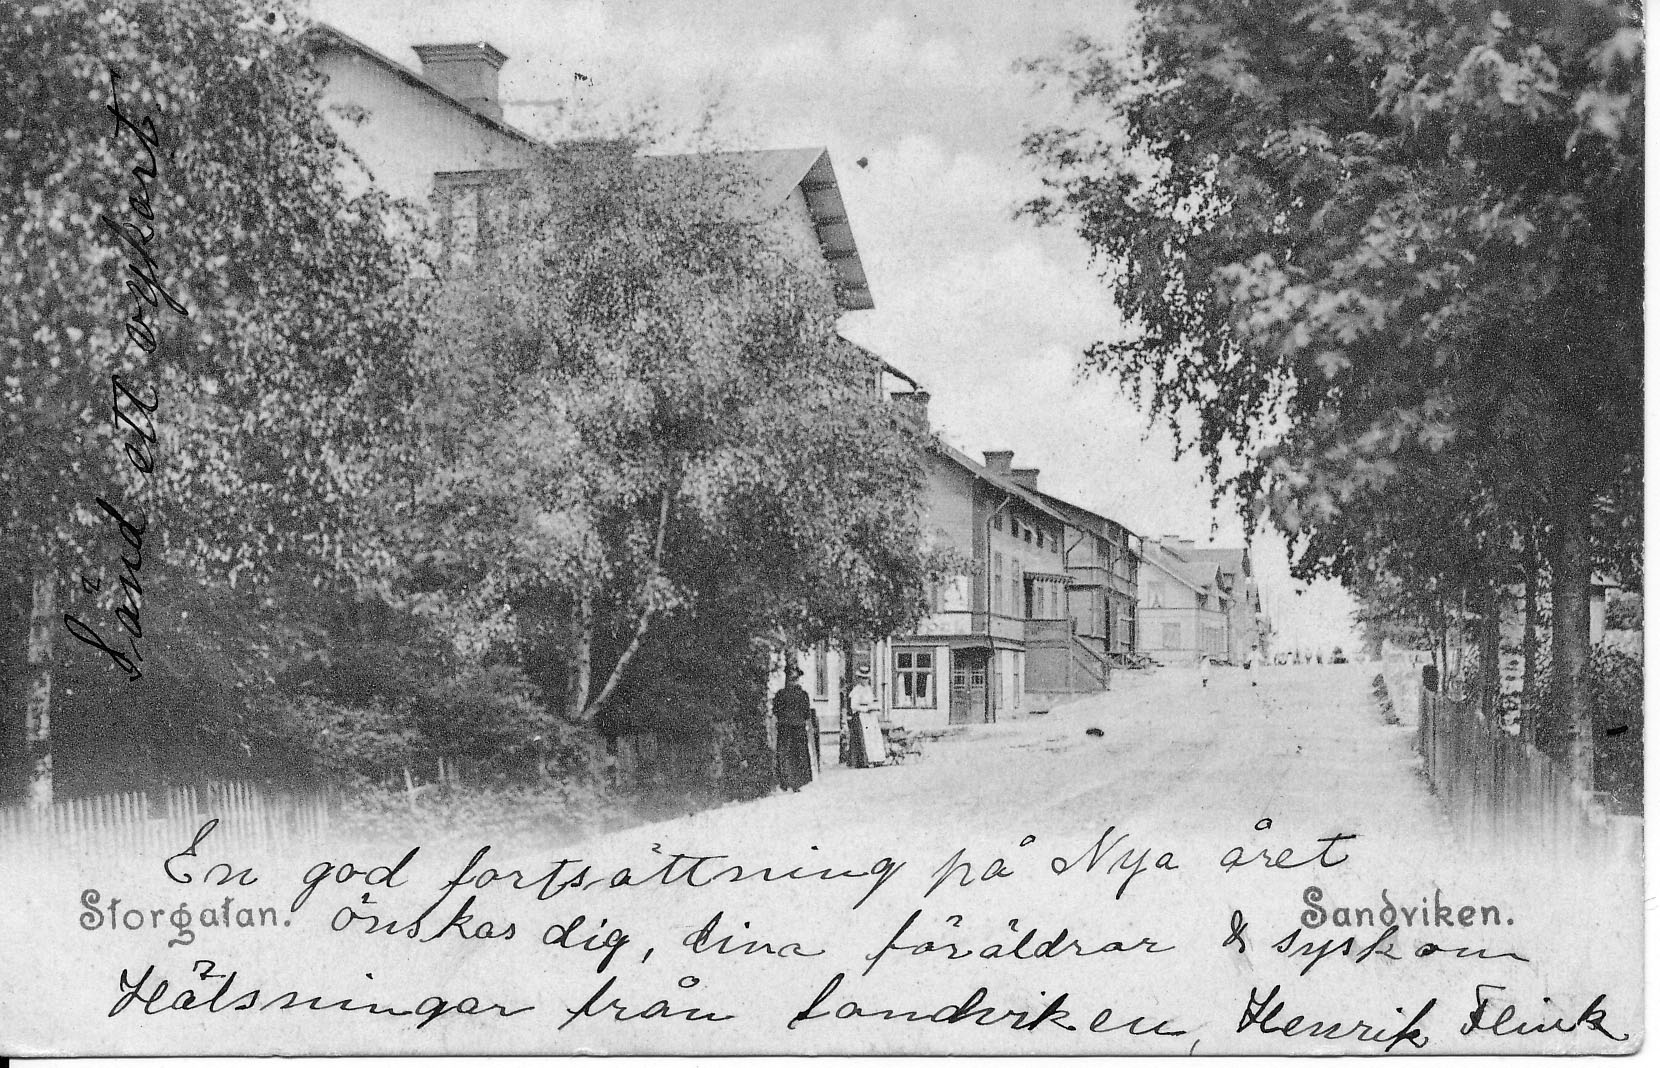 Sänd ett vykort
En god fortsättning på Nya året
Storgatan. Sandviken.
önskas dig, dina föräldrar & syskon
Hälsningar från Sandviken, Henrik Flink